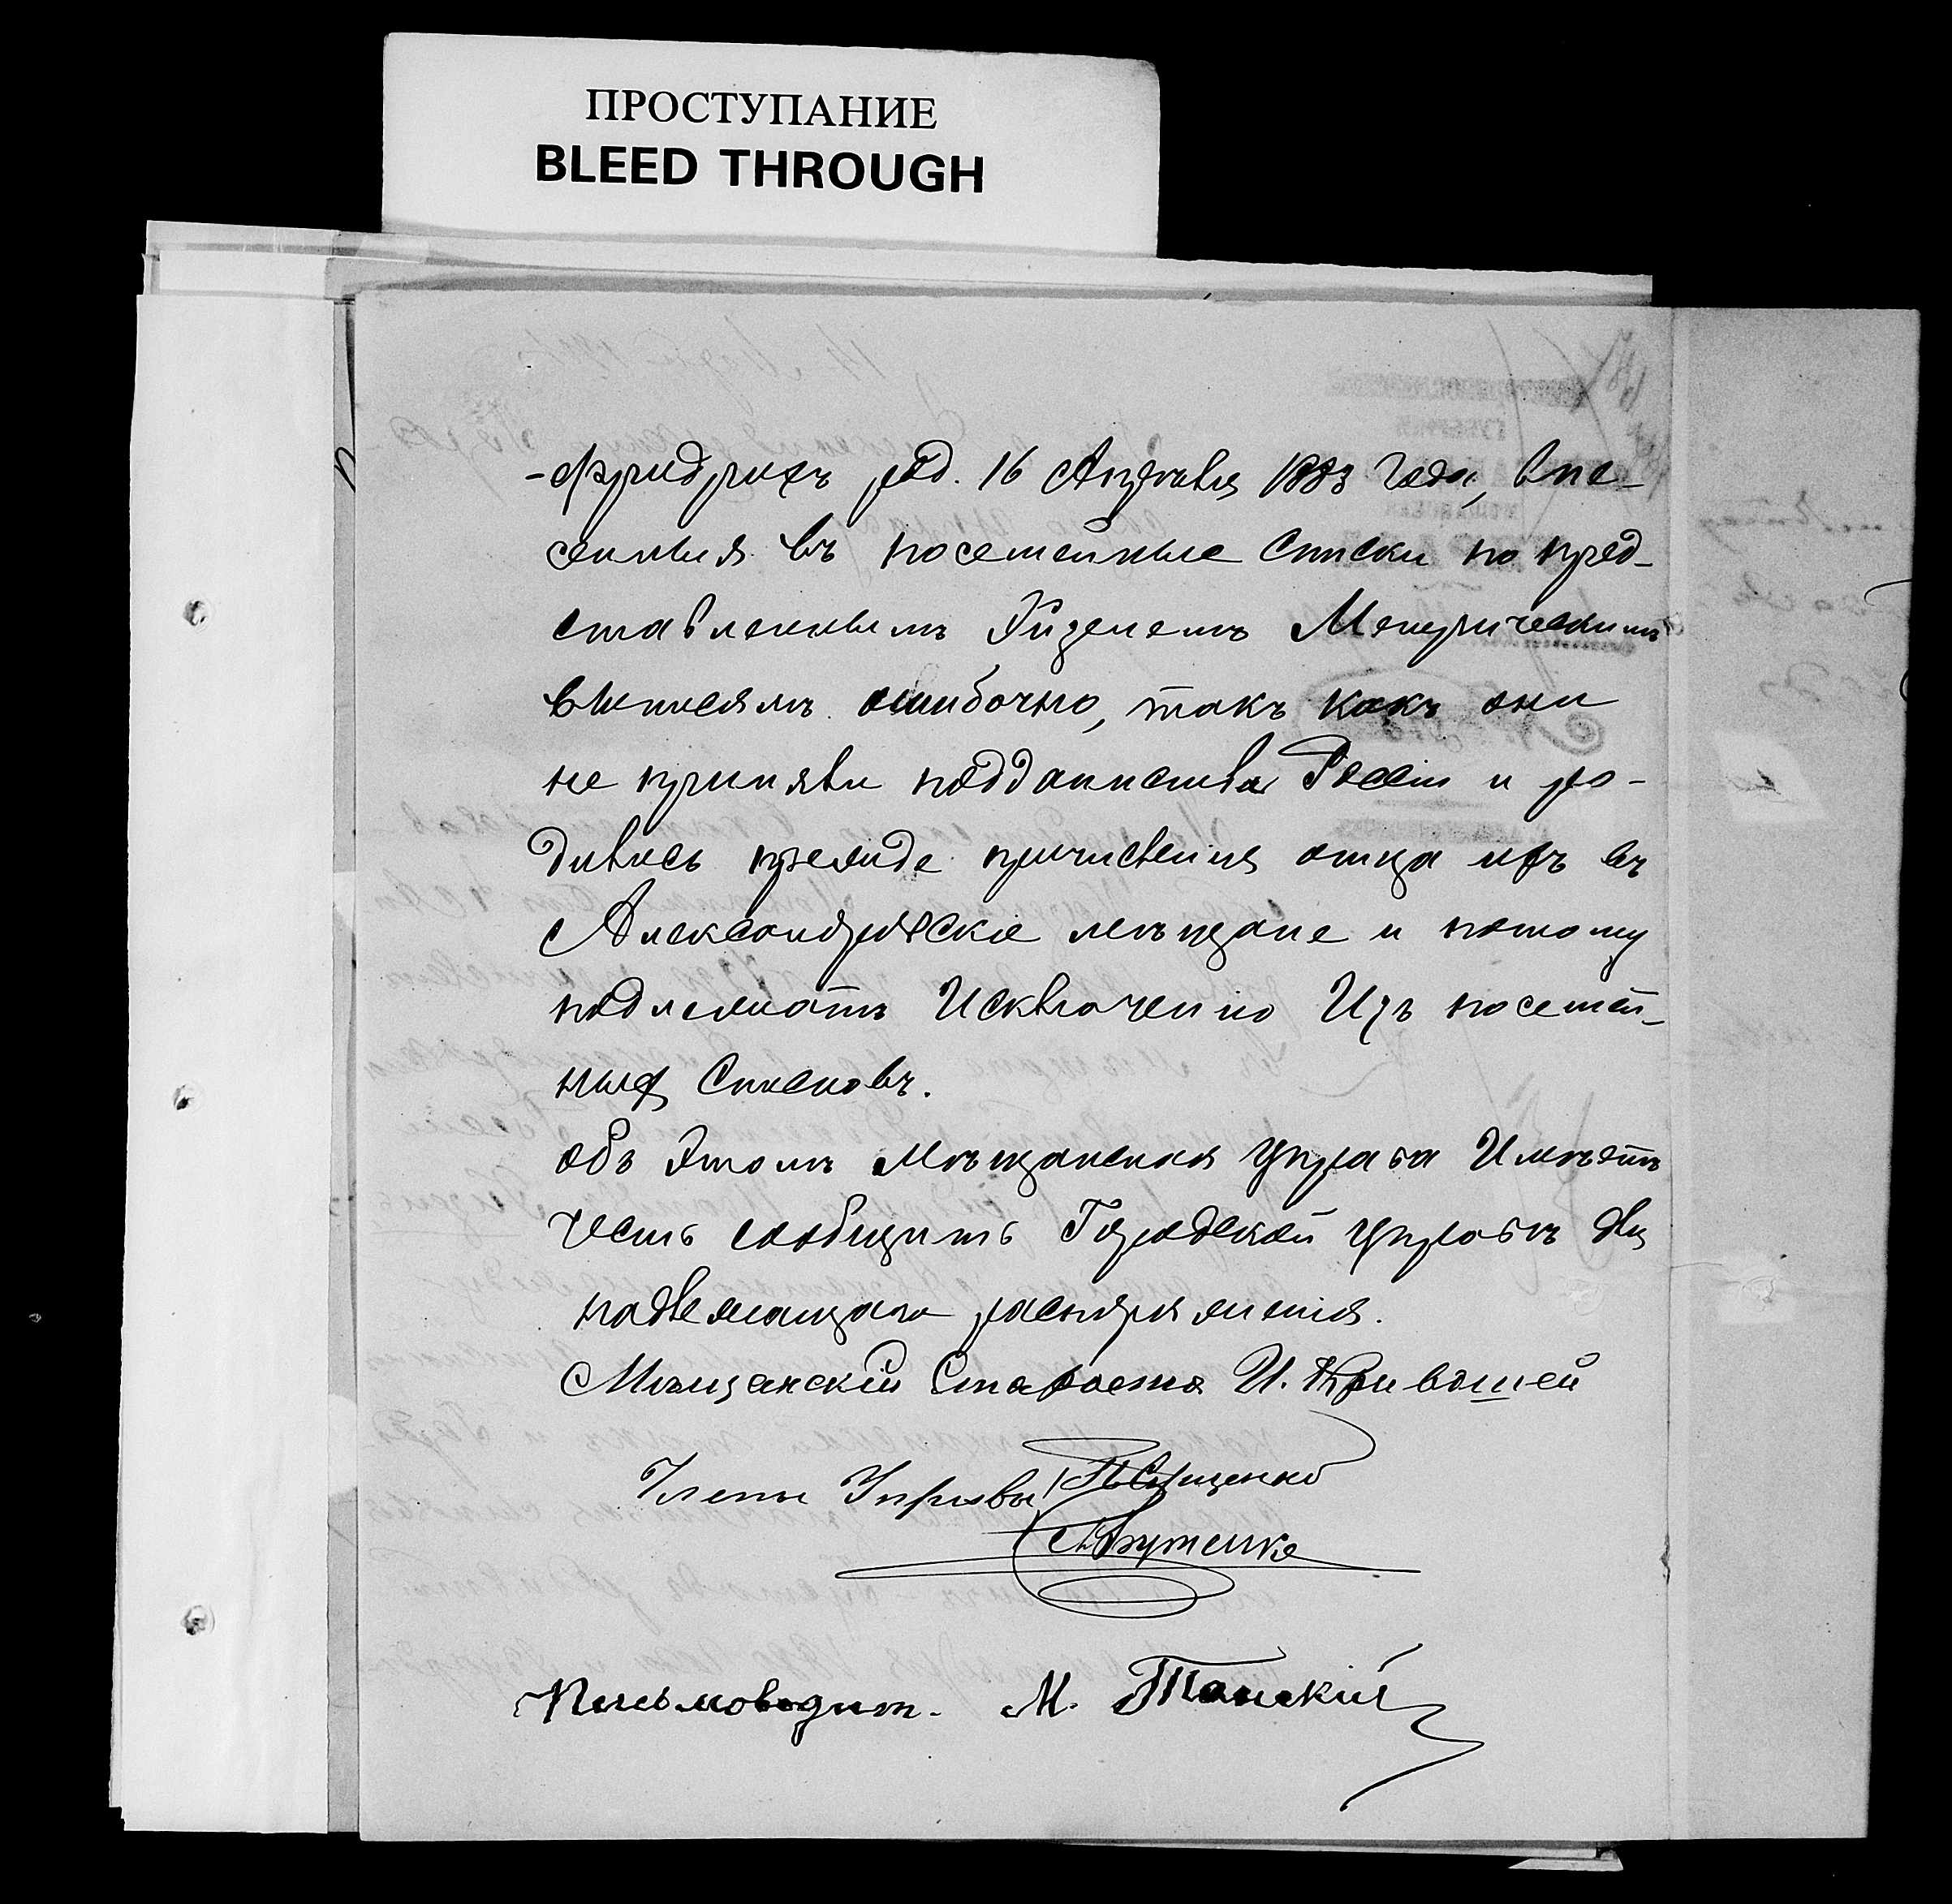 ПРОСТУПАНИЕ
BLEED THROUGH
-Фридрихъ род. 16 Апреля 1883 года, вне-
сенныя въ посемейные списки по пред-
ставленнымъ Гизелемъ Метрическимъ
выписямъ ошибочно, такъ какъ они
не приняли подданства Россiи и ро-
дились прежде причисленiя отца ихъ въ
Александрiйскiе мѣщане и потому
подлежатъ Исключенiю Изъ посемей-
ныхъ Списковъ.
объ Этомъ Мѣщанская управа Имѣетъ
честь сообщить Городской управѣ для
надлежащаго распоряженiя.
Мѣщанскiй Староста И. Кривошей
Члены Управы
Письмоводит. М.